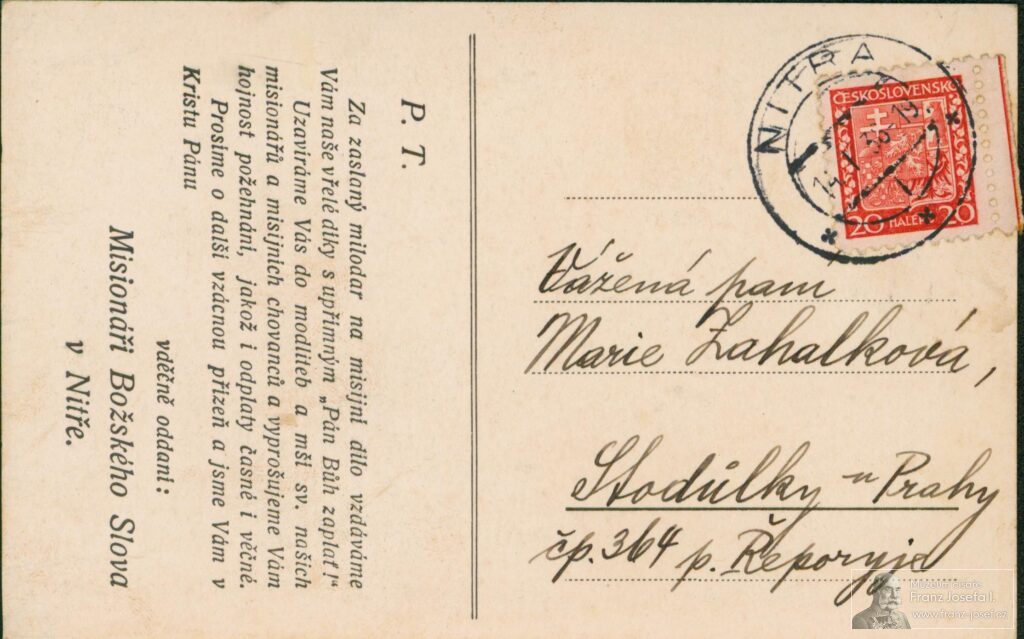 P. T.
Za zaslaný milodar na misijní dílo vzdáváme
Vám naše vřelé díky s upřímným „Pán Bůh zaplať!"
Uzavíráme Vás do modliteb a mší sv. našich
misionářů a misijních chovanců a vyprošujeme Vám
hojnost požehnání, jakož i odplaty časné i věčné.
Prosíme o další vzácnou přízeň a jsme Vám v
Kristu Pánu
vděčně oddaní:
Misionáři Božského Slova
v Nitře.
NITRA
ČESKOSLOVENSKO
20 HALÉŘ 20
Vážená paní
Marie Zahalková,
Stodůlky u Prahy
čp. 364 p. Řeporyje
Muzeum císaře
Franz Josefa I.
www.franz-josef.cz